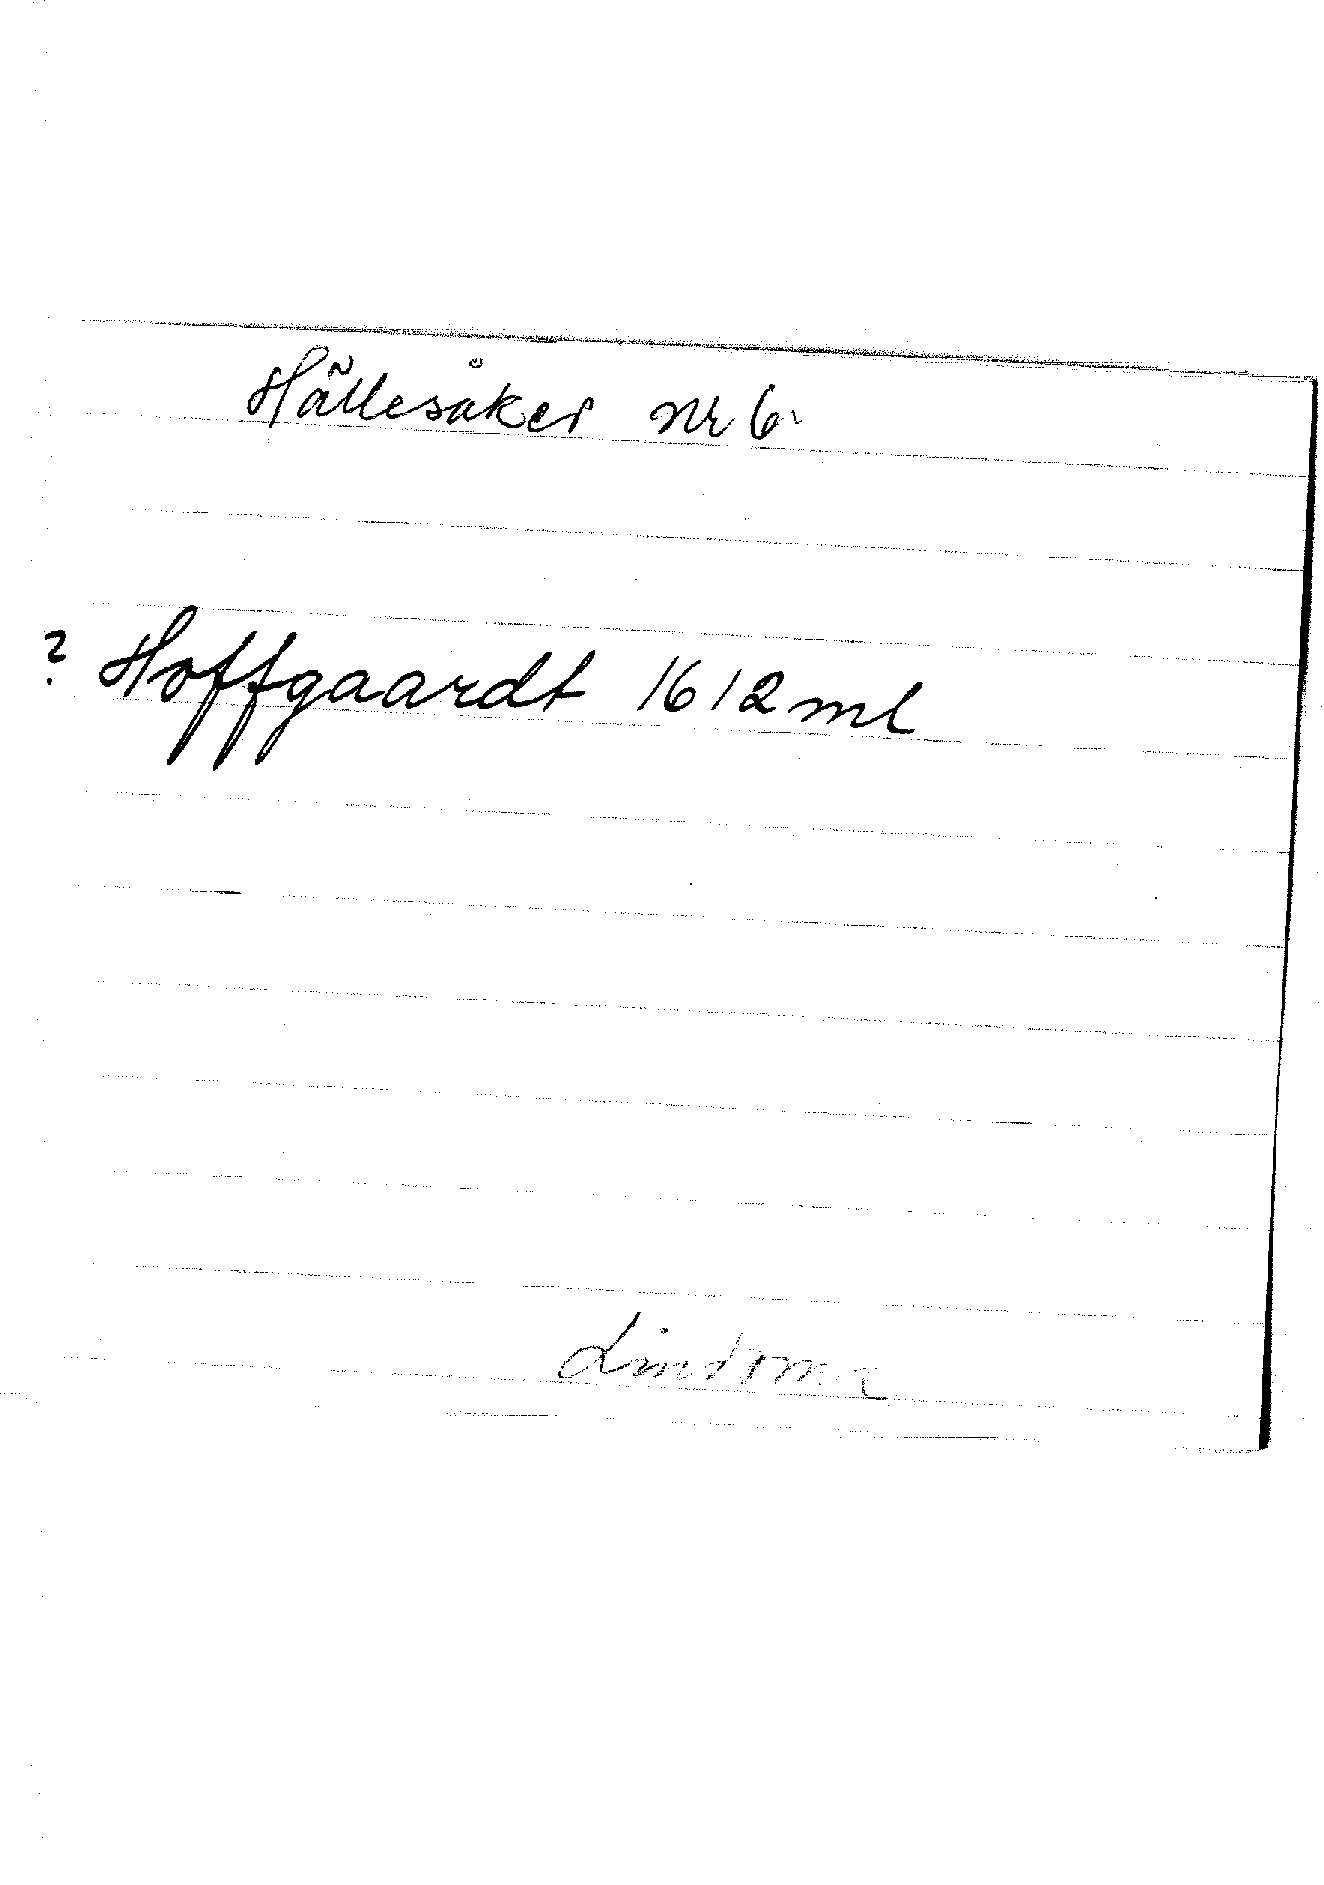 Hällesåker nr 6
? Hoffgaardt 1612 ml
Lindome